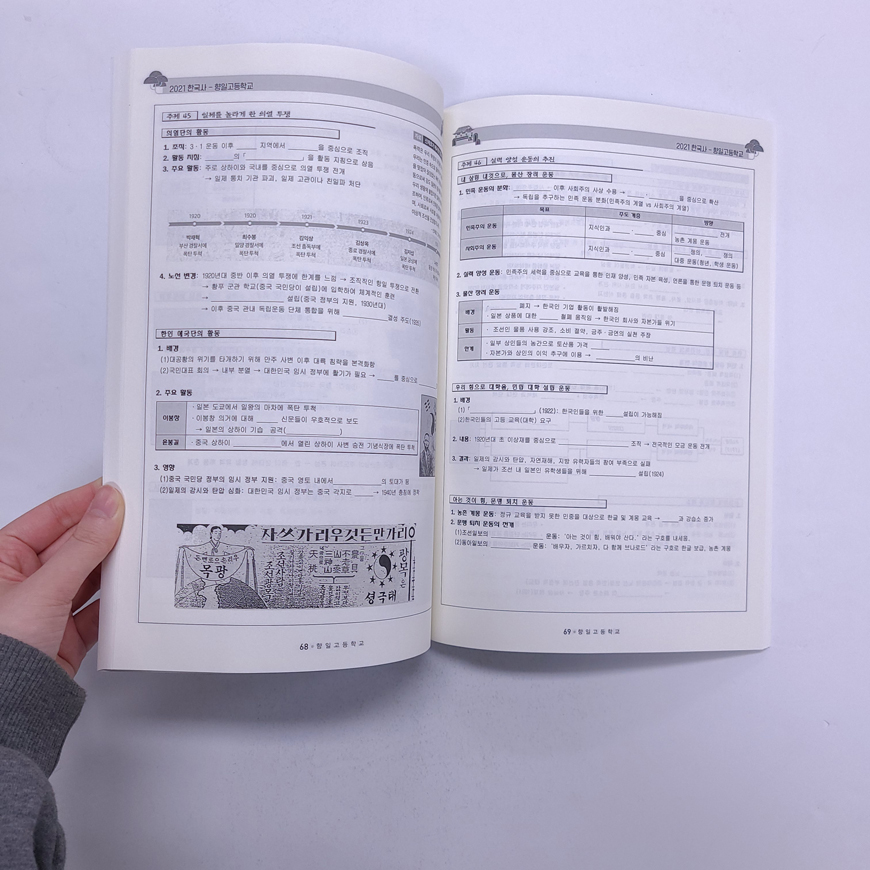 2021 한국사 - 향일고등학교
주제 45 일제를 놀라게 한 의열 투쟁
의열단의 활동
1. 조직: 3·1 운동 이후 ____ 지역에서 ____을 중심으로 조직
2. 활동 지침: ____의 「____」을 활동 지침으로 삼음
3. 주요 활동: 주로 상하이와 국내를 중심으로 의열 투쟁 전개
→ 일제 통치 기관 파괴, 일제 고관이나 친일파 처단
1920 1920 1921 1923 1924
박재혁 최수봉 김익상 김상옥 김지섭
부산 경찰서에 밀양 경찰서에 조선 총독부에 종로 경찰서에
폭탄 투척 폭탄 투척 폭탄 투척 폭탄 투척 폭탄 투척
4. 노선 변경: 1920년대 중반 이후 의열 투쟁에 한계를 느낌 → 조직적인 항일 투쟁으로 전환
→ 황푸 군관 학교(중국 국민당이 설립)에 입학하여 체계적인 훈련
→ ____ 설립(중국 정부의 지원, 1930년대)
→ 이후 중국 관내 독립운동 단체 통합을 위해 ____ 결성 주도(1935)
한인 애국단의 활동
1. 배경
(1)대공황의 위기를 타개하기 위해 만주 사변 이후 대륙 침략을 본격화함
(2)국민대표 회의 → 내부 분열 → 대한민국 임시 정부에 활기가 필요 → ____를 중심으로 ____
2. 주요 활동
이봉창
· 일본 도쿄에서 일왕의 마차에 폭탄 투척
· 이봉창 의거에 대해 ____ 신문들이 우호적으로 보도
→ 일본의 상하이 기습 공격(____)
윤봉길 · 중국 상하이 ____에서 열린 상하이 사변 승전 기념식장에 폭탄 투척
3. 영향
(1)중국 국민당 정부의 임시 정부 지원: 중국 영토 내에서 ____의 토대가 됨
(2)일제의 감시와 탄압 심화: 대한민국 임시 정부는 중국 각지로 ____ → 1940년 충칭에 정착
자쓰가리우것든만가리우
목광
광목은
셩극태
68 × 향일고등학교
2021 한국사 - 향일고등학교
주제 46 실력 양성 운동의 추진
내 살림 내것으로, 물산 장려 운동
1. 민족 운동의 분화: ____ 이후 사회주의 사상 수용 → ____, ____을 중심으로 확산
→ 독립을 추구하는 민족 운동 분화(민족주의 계열 vs 사회주의 계열)
목표 주도 계층 방향
민족주의 운동 지식인과 ____, ____ 중심 ____ 전개
농촌 계몽 운동
사회주의 운동 지식인과 ____, ____ 중심 ____쟁의, ____쟁의
대중 운동(청년, 학생 운동)
2. 실력 양성 운동: 민족주의 세력을 중심으로 교육을 통한 인재 양성, 민족 자본 육성, 언론을 통한 문맹 퇴치 운동 등
3. 물산 장려 운동
배경
· ____ 폐지 → 한국인 기업 활동이 활발해짐
· 일본 상품에 대한 ____ 철폐 움직임 → 한국인 회사와 자본가들 위기
활동 · 조선인 물품 사용 강조, 소비 절약, 금주·금연의 실천 주장
한계
· 일부 상인들의 농간으로 토산품 가격 ____
· 자본가와 상인의 이익 추구에 이용 → ____의 비난
우리 힘으로 대학을, 민립 대학 설립 운동
1. 배경
(1)「____」(1922): 한국인들을 위한 ____ 설립이 가능해짐
(2)한국인들의 고등 교육(대학) 요구
2. 내용: 1920년대 초 이상재를 중심으로 ____ 조직 → 전국적인 모금 운동 전개
3. 결과: 일제의 감시와 탄압, 자연재해, 지방 유력자들의 참여 부족으로 실패
→ 일제가 조선 내 일본인 유학생들을 위해 ____ 설립(1924)
아는 것이 힘, 문맹 퇴치 운동
1. 농촌 계몽 운동: 정규 교육을 받지 못한 민중을 대상으로 한글 및 계몽 교육 → ____과 강습소 증가
2. 문맹 퇴치 운동의 전개
(1)조선일보의 ____ 운동: '아는 것이 힘, 배워야 산다.' 라는 구호를 내세움.
(2)동아일보의 ____ 운동: '배우자, 가르치자, 다 함께 브나로드' 라는 구호로 한글 보급, 농촌 계몽
69 × 향일고등학교